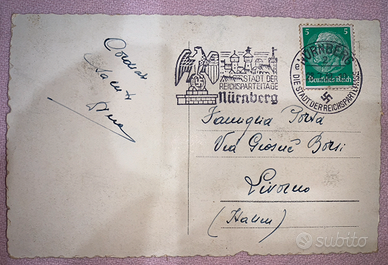 Cordiali
saluti
5 5
Deutsches Reich
NÜRNBERG
DIE STADT DER REICHSPARTEITAGE
STADT DER
REICHSPARTEITAGE
Nürnberg
Famiglia Porta
Via Giosuè Borsi
Livorno
(Italien)
subito